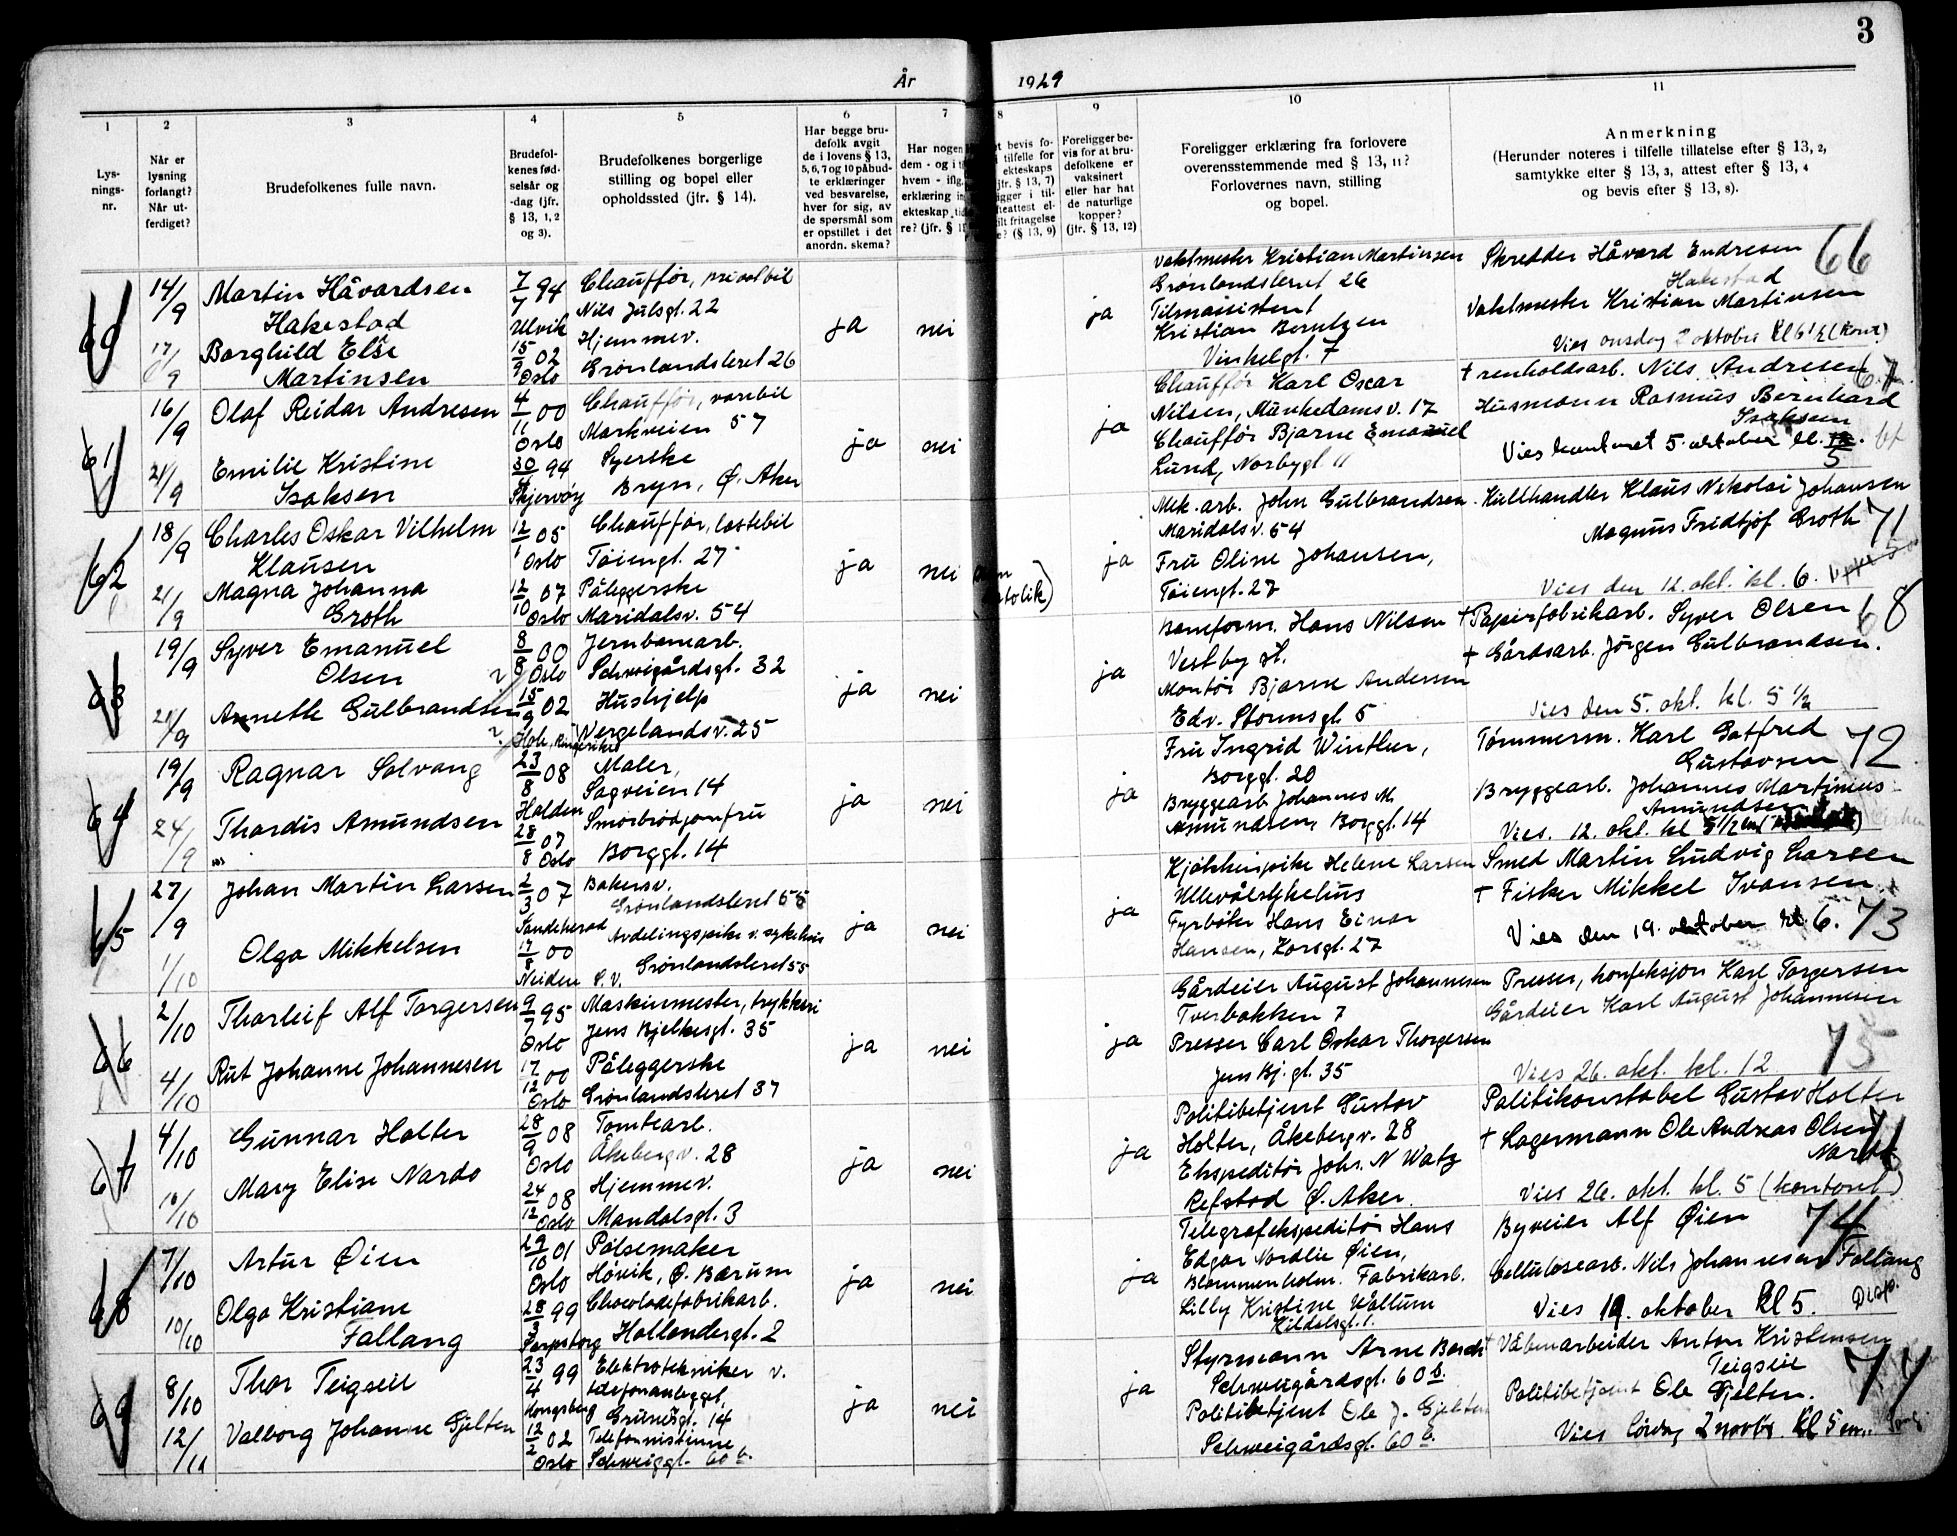 3
År 1929
1
2
3
4
5
6
7
8
9
10
11
Lys-
nings-
nr.
Når er
lysning
forlangt?
Når ut-
ferdiget?
Brudefolkenes fulle navn.
Brudefol-
kenes fød-
selsår og
-dag (jfr.
§ 13, 1, 2
og 3).
Brudefolkenes borgerlige
stilling og bopel eller
opholdssted (jfr. § 14).
Har begge bru-
defolk avgit
de i lovens § 13,
5, 6, 7 og 10 påbud-
te erklæringer
ved besvarelse,
hver for sig, av
de spørsmål som
er opstillet i det
anordn. skema?
Har nogen
dem - og i t
hvem - iflg.
erklæring in
ekteskap tid
re? (jfr. § 1
t bevis fo-
i tilfelle for
ekteskaps
jfr. § 13, 7)
ligger i til-
heattest el-
ilt fritagelse
e? (§ 13, 9)
Foreligger be-
vis for at bru-
defolkene er
vaksinert
eller har hat
de naturlige
kopper?
(jfr. § 13, 12)
Foreligger erklæring fra forlovere
overensstemmende med § 13, 11?
Forlovernes navn, stilling
og bopel.
Anmerkning
(Herunder noteres i tilfelle tillatelse efter § 13, 2,
samtykke efter § 13, 3, attest efter § 13, 4
og bevis efter § 13, 8).
60
14/9
17/9
Martin Håvardsen
Hakestad
Borghild Else
Martinsen
7/7 94
Ulvik
15/9 02
Oslo
Chauffør, privatbil
Nils Julsgt. 22
Hjemmev.
Grønlandsleret 26
ja
nei
ja
Vaktmester Kristian Martinsen
Grønlandsleret 26
Kristian Berntzen
Vinkelgt. 7
Skredder Håvard Endresen
Hakestad
Vaktmester Kristian Martinsen
Vies onsdag 2 oktober kl 6 1/2 (kont)
66
61
16/9
21/9
Olaf Reidar Andresen
Emilie Kristine
Isaksen
4/11 00
Oslo
30/4 94
Skjervøy
Chauffør, varebil
Markveien 57
Syerske
Bryn, Ø. Aker
ja
nei
ja
Chauffør Karl Oscar
Nilsen, Munkedamsv. 17
Chauffør Bjarne Emanuel
Lund, Norbygt. 11
† renholdsarb. Nils Andresen
Husmann Rasmus Bernhard
Isaksen
Vies kontoret 5. oktober kl.
67
62
18/9
21/9
Charles Oskar Vilhelm
Klausen
Magna Johanna
Groth
12/1 05
Oslo
12/10 07
Oslo
Chauffør, lastebil
Tøiengt. 27
Påleggerske
Maridalsv. 54
ja
nei
ja
Mek. arb. John Gulbrandsen
Maridalsv. 54
Fru Oline Johansen,
Tøiengt. 27
Kullhandler Klaus Nikolai Johansen
Magnus Fridtjof Groth
Vies den 12. okt. kl. 6.
71
63
19/9
21/9
Syver Emanuel
Olsen
Anneth Gulbrandsen
8/8 00
Oslo
15/9 02
Hole, Ringerike
Jernbanearb.
Schweigårdsgt. 32
Hushjelp
Vergelandsv. 25
ja
nei
ja
Baneform. Hans Nilsen
Vestby st.
Montør Bjarne Andersen
Edv. Stormsgt. 5
† Papirfabrikarb. Syver Olsen
† Gårdsarb. Jørgen Gulbrandsen.
Vies den 5. okt. kl. 5 1/2
68
64
19/9
24/9
Ragnar Solvang
Thordis Amundsen
23/8 08
Halden
28/8 07
Oslo
Maler,
Sagveien 14
Smørbrødjomfru
Borggt. 14
ja
nei
ja
Fru Ingrid Winther,
Borggt. 20
Bryggearb. Johannes M.
Amundsen, Borggt. 14
Tømmerm. Karl Gotfred
Gustavsen
Bryggearb. Johannes Martinius
Amundsen
Vies. 12. okt. kl 5 1/2
72
65
27/9
1/10
Johan Martin Larsen
Olga Mikkelsen
2/3 07
Sandeherad
17/8 00
Neiden S. V.
Bakersv.
Grønlandsleret 55
Avdelingspike v. sykehus
Grønlandsleret 55
ja
nei
ja
Kjøkkenpike Helene Larsen
Ullevålsykehus
Fyrbøter Hans Einar
Hansen, Korsgt. 27
Smed Martin Ludvig Larsen
† Fisker Mikkel Ivansen
Vies den 19. oktober kl 6.
73
66
2/10
4/10
Thorleif Alf Torgersen
Rut Johanne Johannesen
9/7 95
Oslo
17/12 00
Oslo
Maskinmester, trykkeri
Jens Bjelkesgt. 35
Påleggerske
Grønlandsleret 37
ja
nei
ja
Gårdeier August Johannesen
Tverbakken 7
Presser Carl Oskar Thorgersen
Jens Bj. gt. 35
Presser, konfeksjon Karl Torgersen
Gårdeier Karl August Johannesen
Vies 26. okt. kl. 12
75
67
4/10
10/10
Gunnar Holter
Mary Elise Nardo
28/9 08
Oslo
24/12 08
Oslo
Tomtearb.
Åkebergv. 28
Hjemmev.
Mandalsgt. 3
ja
nei
ja
Politibetjent Gustav
Holter, Åkebergv. 28
Ekspeditør Johs. N Watz
Refstad Ø. Aker.
Politikonstabel Gustav Holter
† Lagermann Ole Andreas Olsen
Vies 26. okt. kl. 5 (kontoret)
68
7/10
10/10
Artur Øien
Olga Kristiane
Fallang
29/10 01
Oslo
28/3 99
Sarpsborg
Pølsemaker
Høvik, Ø. Bærum
Chocoladefabrikarb.
Hollendergt. 2
ja
nei
ja
Telegrafekspeditør Hans
Edgar Nordlie Øien,
Blommenholm. Fabrikarb.
Lilly Kristine Wållum
Kildalsgt. 1.
Byveier Alf Øien
Cellulosearb. Nils Johannesen Fallang
Vies 19. oktober kl 5. Disp.
74
69
8/10
12/11
Thor Teigseie
Valborg Johanne Gjelten
23/4 99
Kongsberg
12/2 02
Oslo
Elektrotekniker v.
telefonanlegget,
Grünersgt. 14
Telefonistinne
Schweiggt. 60 b.
ja
nei
ja
Styrmann Arne Barch
Schweigårdsgt. 60 b.
Politibetjent Ole J. Gjelten
Schweigårdsgt. 60 b.
† Våbenarbeider Anton Kristensen
Teigseie
Politibetjent Ole Gjelten.
Vies lørdag 2 novbr. kl 5 em.
77